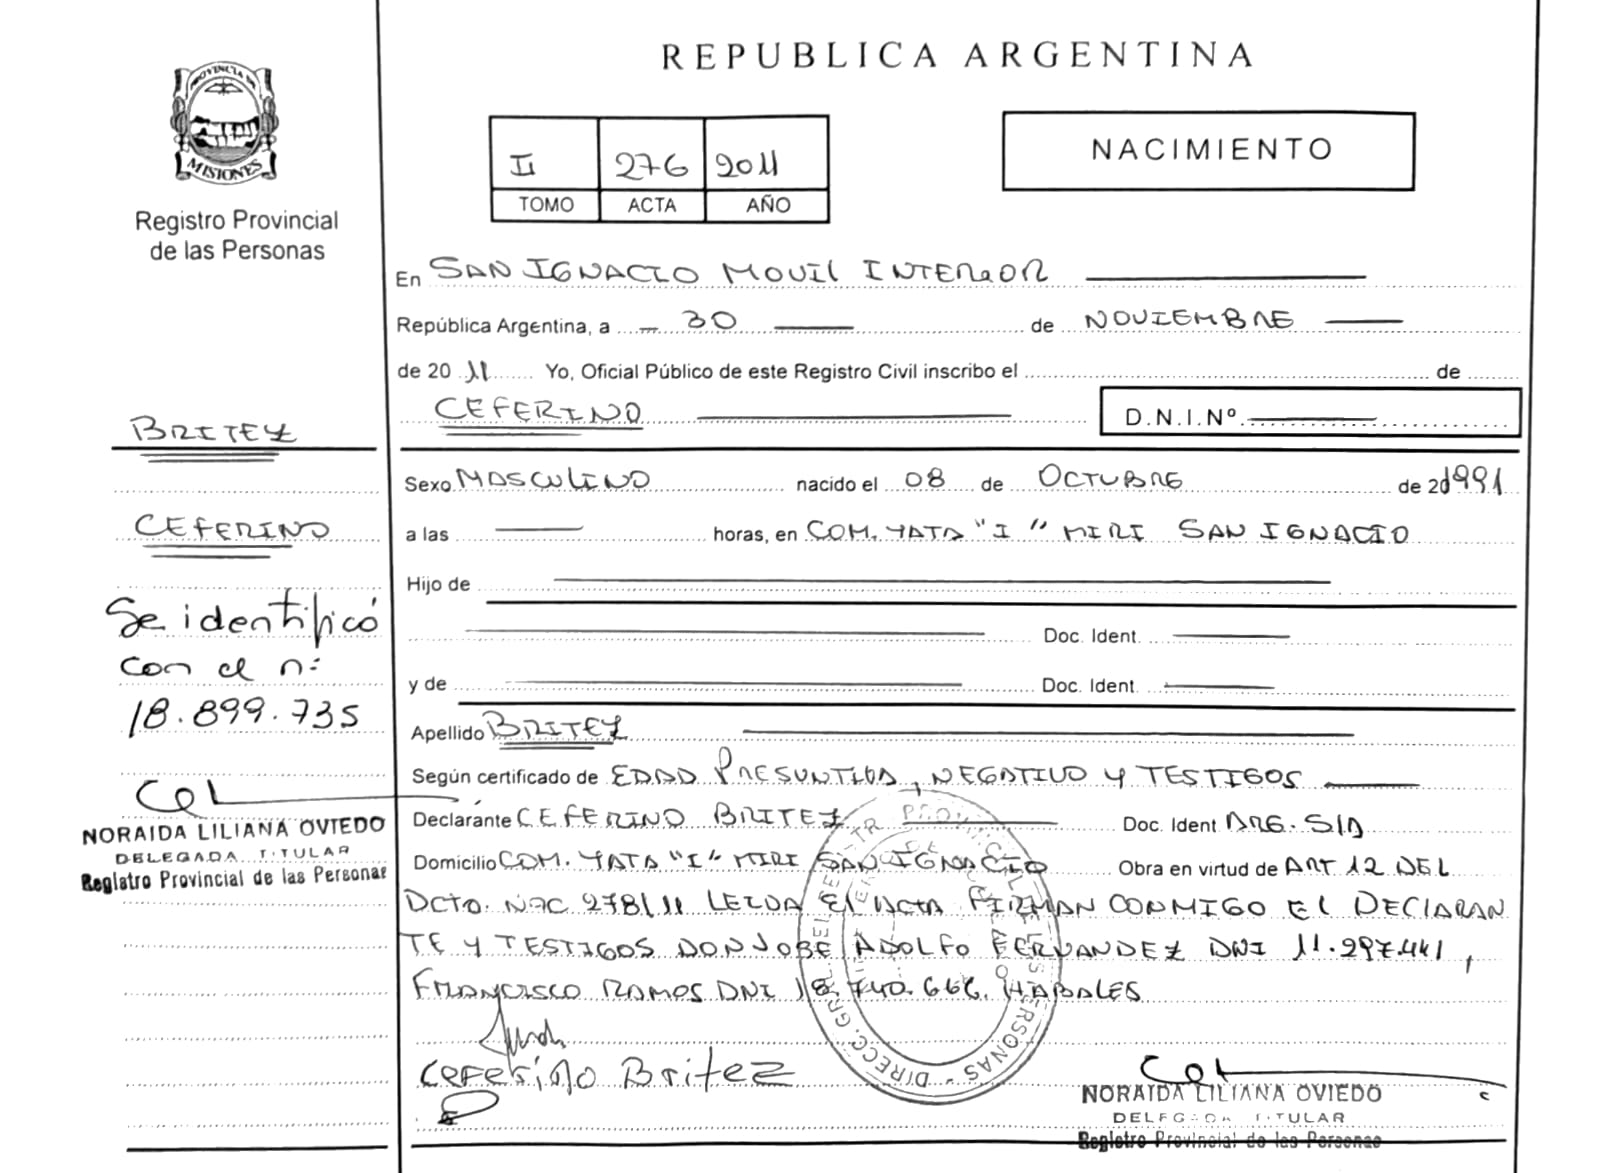 REPUBLICA ARGENTINA
PROVINCIA DE
MISIONES
Registro Provincial
de las Personas
II 276 2011
TOMO ACTA AÑO
NACIMIENTO
En SAN IGNACIO MOVIL INTERIOR
República Argentina, a 30 de NOVIEMBRE
de 20 11 Yo, Oficial Público de este Registro Civil inscribo el de
CEFERINO
D.N.I.Nº
Sexo MASCULINO nacido el 08 de OCTUBRE de 20 1991
a las horas, en COM. YATA "I" MIRI SAN IGNACIO
Hijo de
Doc. Ident.
y de Doc. Ident.
Apellido BRITEZ
Según certificado de EDAD PRESUNTIVA, NEGATIVO Y TESTIGOS
Declarante CEFERINO BRITEZ Doc. Ident ARG. S/D
Domicilio COM. YATA "I" MIRI SAN IGNACIO Obra en virtud de ART 12 DEL
DCTO. NAC 278/11 LEIDA EL ACTA FIRMAN CONMIGO EL DECLARAN
TE Y TESTIGOS DON JOSE ADOLFO FERNANDEZ DNI 11.297.441,
FRANCISCO RAMOS DNI 18.740.666. HABALES
Ceferino Britez
NORAIDA LILIANA OVIEDO
DELEGADA TITULAR
Registro Provincial de las Personas
BRITEZ
CEFERINO
Se identificó
con el nº
18.899.735
NORAIDA LILIANA OVIEDO
DELEGADA TITULAR
Registro Provincial de las Personas